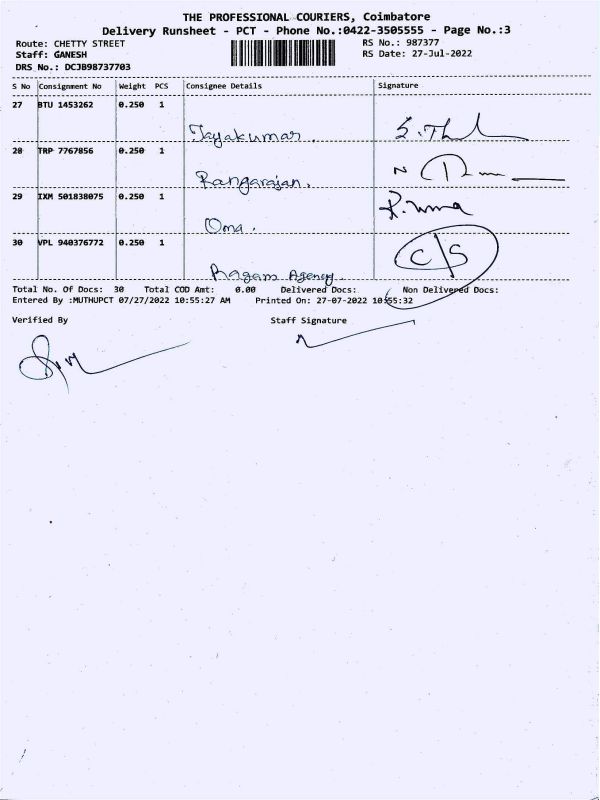 THE PROFESSIONAL COURIERS, Coimbatore
Delivery Runsheet - PCT - Phone No.:0422-3505555 - Page No.:3
Route: CHETTY STREET RS No.: 987377
Staff: GANESH RS Date: 27-Jul-2022
DRS No.: DCJB98737703
S No Consignment No Weight PCS Consignee Details Signature
27 BTU 1453262 0.250 1
Jayakumar.
28 TRP 7767856 0.250 1
Rangarajan.
29 IXM 501838075 0.250 1 R.Uma
Oma.
30 VPL 940376772 0.250 1 C/S
Ragam Agency.
Total No. Of Docs: 30 Total COD Amt: 0.00 Delivered Docs: Non Delivered Docs:
Entered By :MUTHUPCT 07/27/2022 10:55:27 AM Printed On: 27-07-2022 10:55:32
Verified By Staff Signature